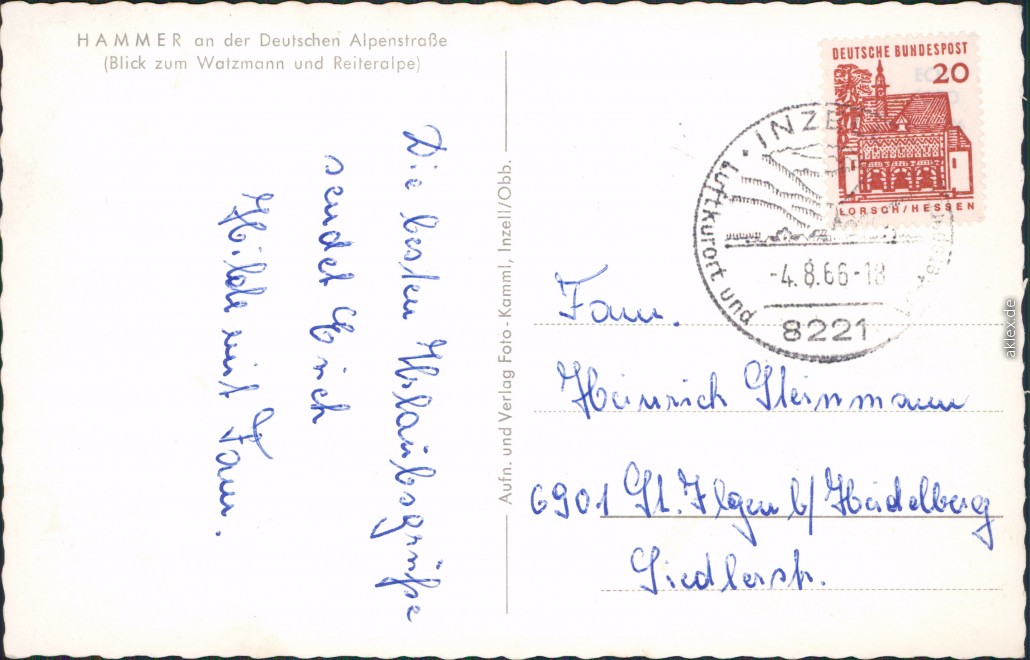 HAMMER an der Deutschen Alpenstraße
(Blick zum Watzmann und Reiteralpe)
Die besten Urlaubsgrüße
sendet Erich
Hilde mit Fam.
Aufn. und Verlag Foto-Kamml, Inzell/Obb.
DEUTSCHE BUNDESPOST
20
LORSCH/HESSEN
INZE
Luftkurort und
-4.8.66-18
8221
Fam.
Heinrich Steinmann
6901 St. Ilgen b/ Heidelberg
Siedlerstr.
aklex.de